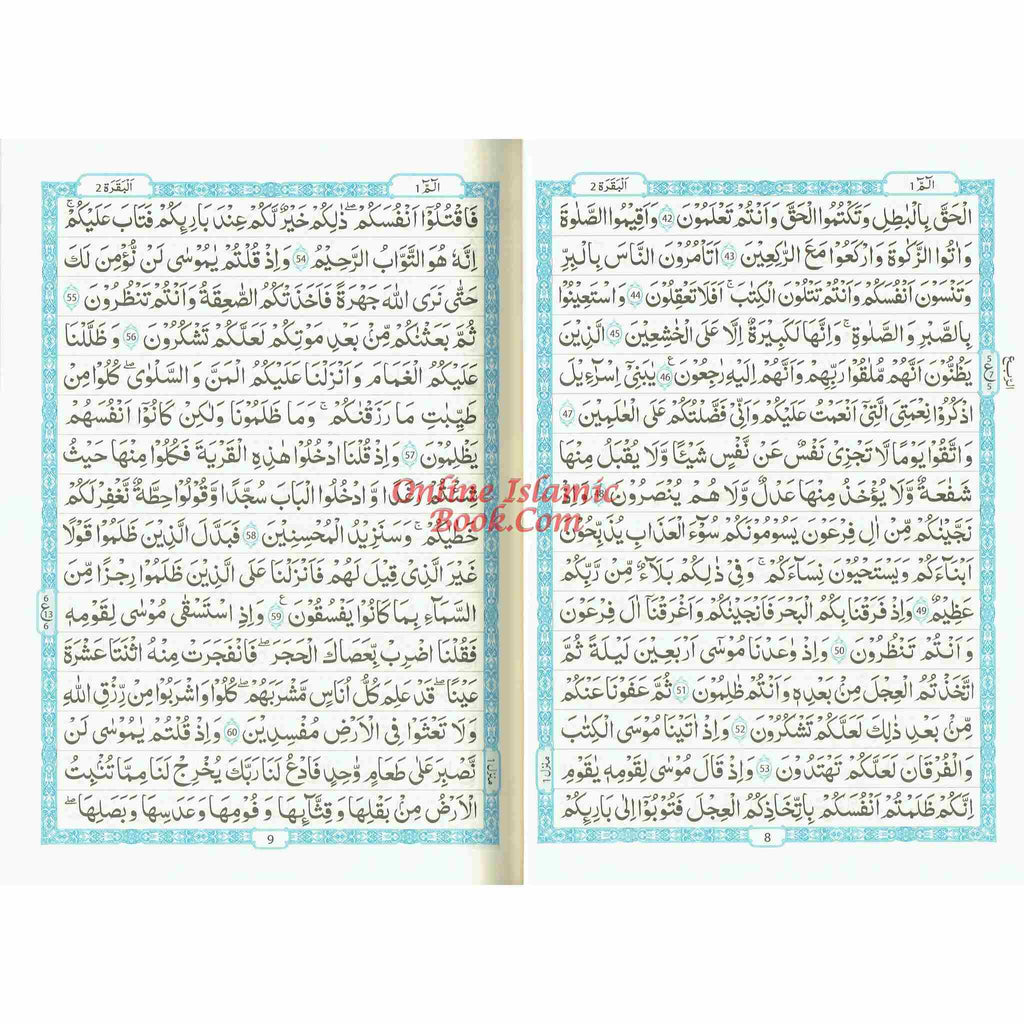 الٓمّٓ 1
اَلْبَقَرَة 2
الْحَقَّ بِالْبَاطِلِ وَتَكْتُمُوا الْحَقَّ وَاَنْتُمْ تَعْلَمُوْنَ 42 وَاَقِيْمُوا الصَّلٰوةَ
وَاٰتُوا الزَّكٰوةَ وَارْكَعُوْا مَعَ الرّٰكِعِيْنَ 43 اَتَاْمُرُوْنَ النَّاسَ بِالْبِرِّ
وَتَنْسَوْنَ اَنْفُسَكُمْ وَاَنْتُمْ تَتْلُوْنَ الْكِتٰبَ ؕ اَفَلَا تَعْقِلُوْنَ 44 وَاسْتَعِيْنُوْا
بِالصَّبْرِ وَالصَّلٰوةِ ؕ وَاِنَّهَا لَكَبِيْرَةٌ اِلَّا عَلَى الْخٰشِعِيْنَ 45 الَّذِيْنَ
يَظُنُّوْنَ اَنَّهُمْ مُّلٰقُوْا رَبِّهِمْ وَاَنَّهُمْ اِلَيْهِ رٰجِعُوْنَ 46 يٰبَنِيْٓ اِسْرَآءِيْلَ
اذْكُرُوْا نِعْمَتِيَ الَّتِيْٓ اَنْعَمْتُ عَلَيْكُمْ وَاَنِّيْ فَضَّلْتُكُمْ عَلَى الْعٰلَمِيْنَ 47
وَاتَّقُوْا يَوْمًا لَّا تَجْزِيْ نَفْسٌ عَنْ نَّفْسٍ شَيْـًٔا وَّلَا يُقْبَلُ مِنْهَا
شَفَاعَةٌ وَّلَا يُؤْخَذُ مِنْهَا عَدْلٌ وَّلَا هُمْ يُنْصَرُوْنَ 48 وَاِذْ
نَجَّيْنٰكُمْ مِّنْ اٰلِ فِرْعَوْنَ يَسُوْمُوْنَكُمْ سُوْٓءَ الْعَذَابِ يُذَبِّحُوْنَ
اَبْنَآءَكُمْ وَيَسْتَحْيُوْنَ نِسَآءَكُمْ ؕ وَفِيْ ذٰلِكُمْ بَلَآءٌ مِّنْ رَّبِّكُمْ
عَظِيْمٌ 49 وَاِذْ فَرَقْنَا بِكُمُ الْبَحْرَ فَاَنْجَيْنٰكُمْ وَاَغْرَقْنَآ اٰلَ فِرْعَوْنَ
وَاَنْتُمْ تَنْظُرُوْنَ 50 وَاِذْ وٰعَدْنَا مُوْسٰٓى اَرْبَعِيْنَ لَيْلَةً ثُمَّ
اتَّخَذْتُمُ الْعِجْلَ مِنْۢ بَعْدِهٖ وَاَنْتُمْ ظٰلِمُوْنَ 51 ثُمَّ عَفَوْنَا عَنْكُمْ
مِّنْۢ بَعْدِ ذٰلِكَ لَعَلَّكُمْ تَشْكُرُوْنَ 52 وَاِذْ اٰتَيْنَا مُوْسَى الْكِتٰبَ
وَالْفُرْقَانَ لَعَلَّكُمْ تَهْتَدُوْنَ 53 وَاِذْ قَالَ مُوْسٰى لِقَوْمِهٖ يٰقَوْمِ
اِنَّكُمْ ظَلَمْتُمْ اَنْفُسَكُمْ بِاتِّخَاذِكُمُ الْعِجْلَ فَتُوْبُوْٓا اِلٰى بَارِىِٕكُمْ
5
ع 7
5
الربع
منزل 1
8
الٓمّٓ 1
اَلْبَقَرَة 2
فَاقْتُلُوْٓا اَنْفُسَكُمْ ؕ ذٰلِكُمْ خَيْرٌ لَّكُمْ عِنْدَ بَارِىِٕكُمْ ؕ فَتَابَ عَلَيْكُمْ ؕ
اِنَّهٗ هُوَ التَّوَّابُ الرَّحِيْمُ 54 وَاِذْ قُلْتُمْ يٰمُوْسٰى لَنْ نُّؤْمِنَ لَكَ
حَتّٰى نَرَى اللّٰهَ جَهْرَةً فَاَخَذَتْكُمُ الصّٰعِقَةُ وَاَنْتُمْ تَنْظُرُوْنَ 55
ثُمَّ بَعَثْنٰكُمْ مِّنْۢ بَعْدِ مَوْتِكُمْ لَعَلَّكُمْ تَشْكُرُوْنَ 56 وَظَلَّلْنَا
عَلَيْكُمُ الْغَمَامَ وَاَنْزَلْنَا عَلَيْكُمُ الْمَنَّ وَالسَّلْوٰى ؕ كُلُوْا مِنْ
طَيِّبٰتِ مَا رَزَقْنٰكُمْ ؕ وَمَا ظَلَمُوْنَا وَلٰكِنْ كَانُوْٓا اَنْفُسَهُمْ
يَظْلِمُوْنَ 57 وَاِذْ قُلْنَا ادْخُلُوْا هٰذِهِ الْقَرْيَةَ فَكُلُوْا مِنْهَا حَيْثُ
شِئْتُمْ رَغَدًا وَّادْخُلُوا الْبَابَ سُجَّدًا وَّقُوْلُوْا حِطَّةٌ نَّغْفِرْ لَكُمْ
خَطٰيٰكُمْ ؕ وَسَنَزِيْدُ الْمُحْسِنِيْنَ 58 فَبَدَّلَ الَّذِيْنَ ظَلَمُوْا قَوْلًا
غَيْرَ الَّذِيْ قِيْلَ لَهُمْ فَاَنْزَلْنَا عَلَى الَّذِيْنَ ظَلَمُوْا رِجْزًا مِّنَ
السَّمَآءِ بِمَا كَانُوْا يَفْسُقُوْنَ 59 وَاِذِ اسْتَسْقٰى مُوْسٰى لِقَوْمِهٖ
فَقُلْنَا اضْرِبْ بِّعَصَاكَ الْحَجَرَ ؕ فَانْفَجَرَتْ مِنْهُ اثْنَتَا عَشْرَةَ
عَيْنًا ؕ قَدْ عَلِمَ كُلُّ اُنَاسٍ مَّشْرَبَهُمْ ؕ كُلُوْا وَاشْرَبُوْا مِنْ رِّزْقِ اللّٰهِ
وَلَا تَعْثَوْا فِى الْاَرْضِ مُفْسِدِيْنَ 60 وَاِذْ قُلْتُمْ يٰمُوْسٰى لَنْ
نَّصْبِرَ عَلٰى طَعَامٍ وَّاحِدٍ فَادْعُ لَنَا رَبَّكَ يُخْرِجْ لَنَا مِمَّا تُنْۢبِتُ
الْاَرْضُ مِنْۢ بَقْلِهَا وَقِثَّآىِٕهَا وَفُوْمِهَا وَعَدَسِهَا وَبَصَلِهَا ؕ
6
ع 13
6
منزل 1
9
Online Islamic
Book.Com